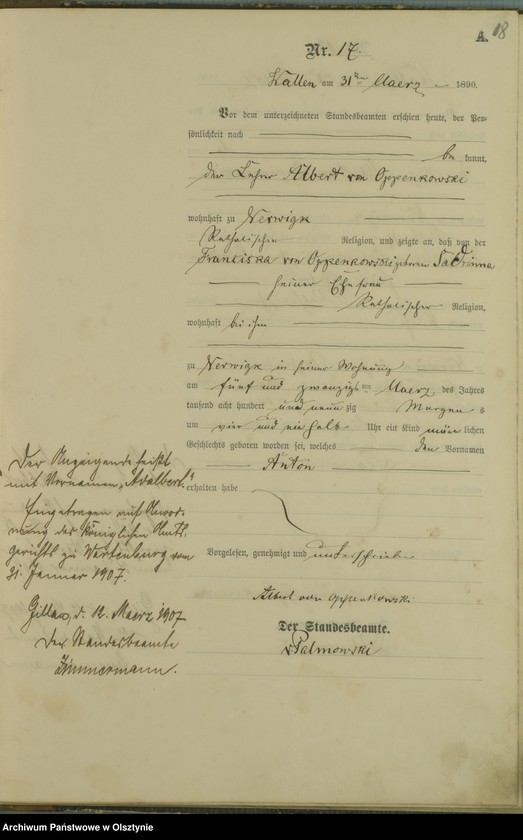 A. 18
Nr. 17.
Kallen am 31ten Maerz 1890.
Vor dem unterzeichneten Standesbeamten erschien heute, der Per-
sönlichkeit nach
be kannt,
der Lehrer Albert von Oppenkowski
wohnhaft zu Nerwigk
Katholischer Religion, und zeigte an, daß von der
Franciska von Oppenkowski geborenen
seiner Ehefrau
Katholischer Religion,
wohnhaft bei ihm
zu Nerwigk in seiner Wohnung
am fünf und zwanzigsten Maerz des Jahres
tausend acht hundert und neun zig Morgens
um vier und ein halb Uhr ein Kind männlichen
Geschlechts geboren worden sei, welches den Vornamen
Anton
erhalten habe
Vorgelesen, genehmigt und unterschrieben
Albert von Oppenkowski
Der Standesbeamte.
Palmowski
Der Anzeigende heißt
mit Vornamen „Adalbert."
Eingetragen auf Anord-
nung des Königlichen Amts-
gerichts zu Wartenburg vom
31. Januar 1907.
Gillau, d. 12. Maerz 1907
Der Standesbeamte
Zimmermann.
Archiwum Państwowe w Olsztynie